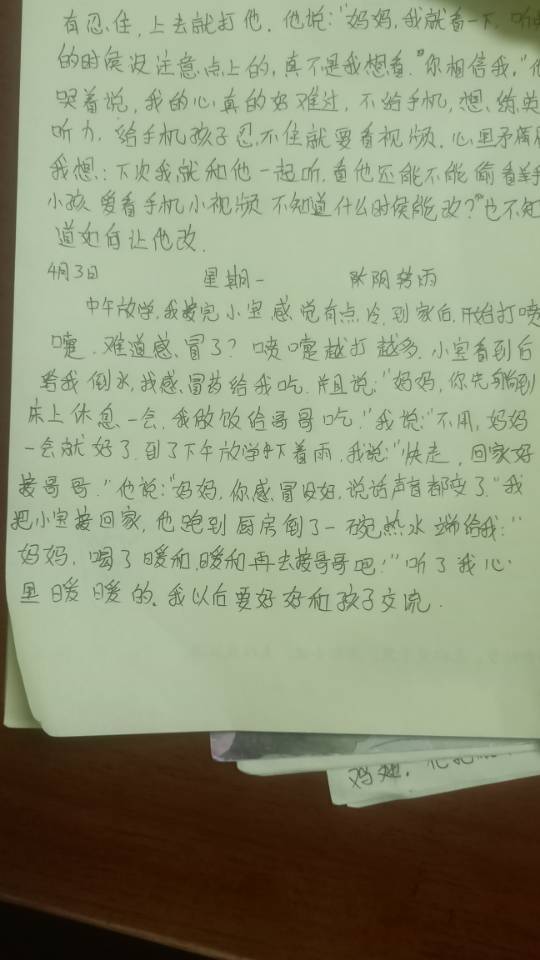 有忍住，上去就打他．他说："妈妈，我就看一下，听
的时侯没注意点上的，真不是我想看．"你相信我，"他
哭着说，我的心真的好难过，不给手机，想、练英
听力，给手机孩子忍不住就要看视频．心里矛盾
我想：下次我就和他一起听．看他还能不能偷看
小孩爱看手机小视频不知道什么时侯能改？"也不知
道如何让他改．
4月3日 星期一 阴转雨
中午放学，我接完小宝感觉有点冷．到家后，开始打喷
嚏．难道感冒了？喷嚏越打越多．小宝看到后
给我倒水，找感冒药给我吃．并且说："妈妈，你先躺到
床上休息一会，我做饭给哥哥吃．"我说："不用，妈妈
一会就好了．到了下午放学下着雨．我说："快走，回家好
接哥哥．"他说："妈妈，你感冒没好，说话声音都变了．"我
把小宝接回家，他跑到厨房倒了一碗热水端给我："
妈妈，喝了暖和，暖和再去接哥哥吧！"听了我心
里暖暖的。我以后要好好和孩子交流．
妈妈，